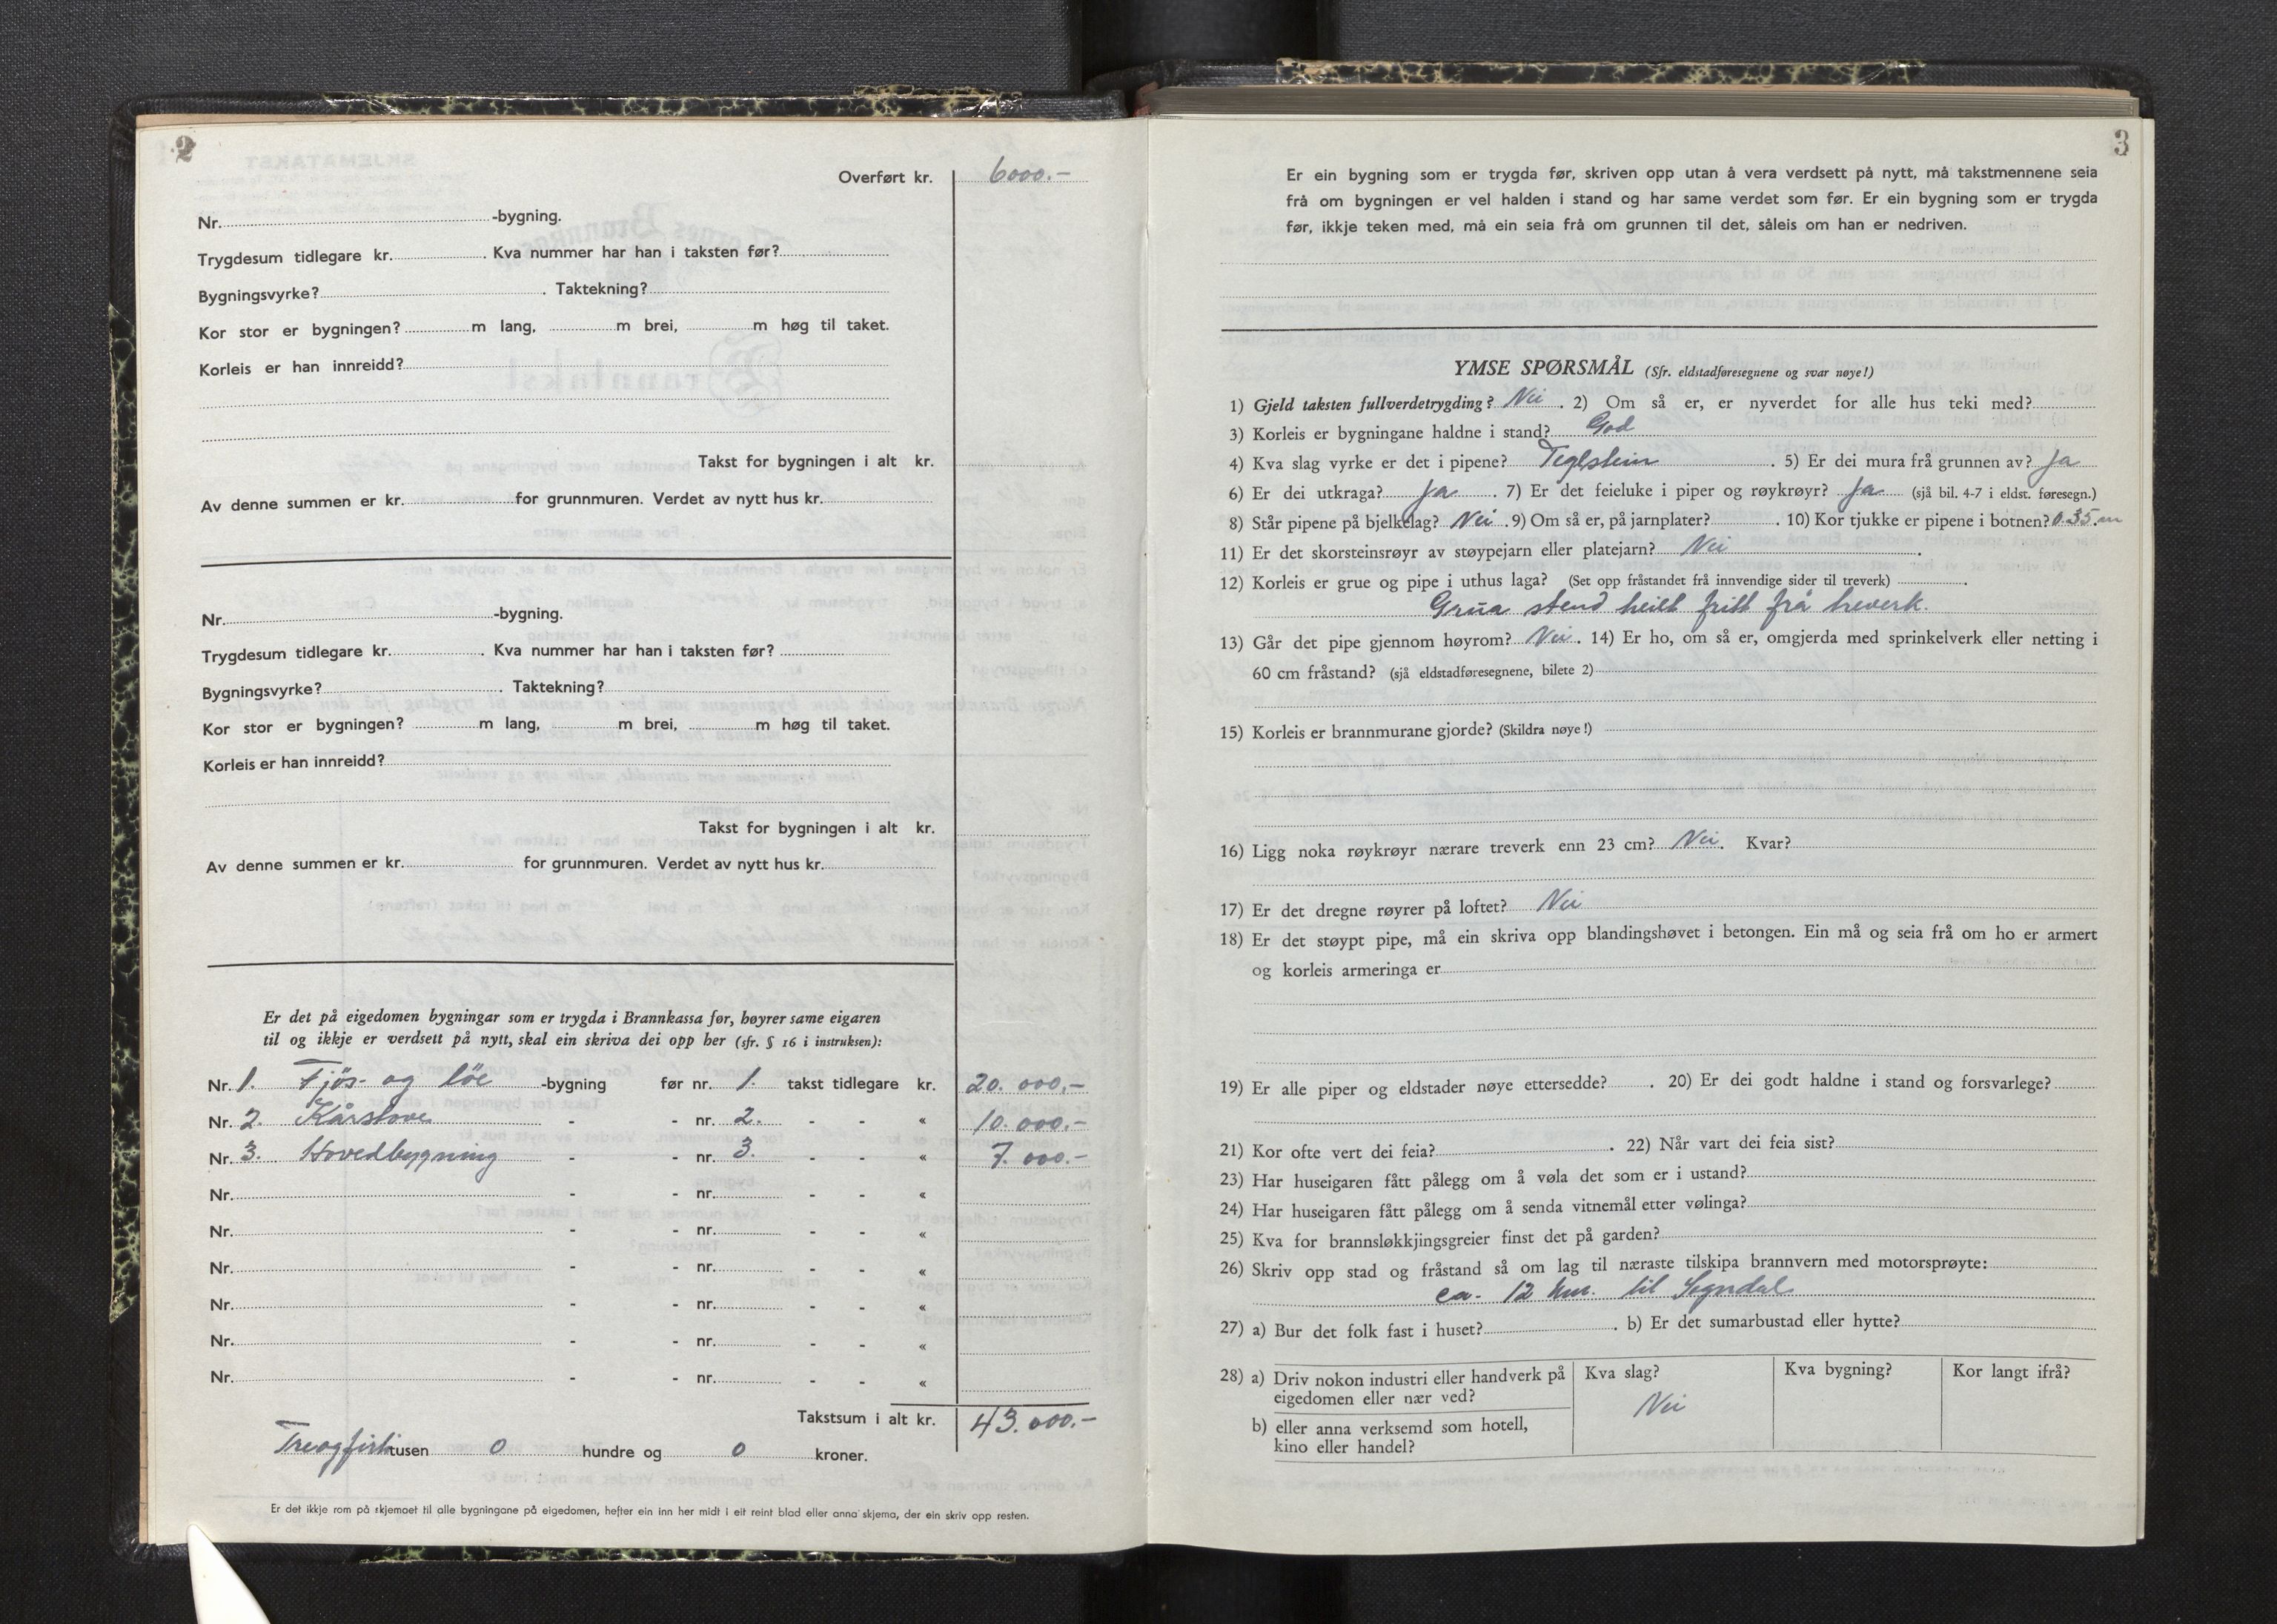 2
Overført kr. 6000.-
Nr. -bygning.
Trygdesum tidlegare kr. . Kva nummer har han i taksten før?
Bygningsvyrke? . Taktekning?
Kor stor er bygningen? m lang, m brei, m høg til taket.
Korleis er han innreidd?
Takst for bygningen i alt kr.
Av denne summen er kr. for grunnmuren. Verdet av nytt hus kr.
Nr. -bygning.
Trygdesum tidlegare kr. . Kva nummer har han i taksten før?
Bygningsvyrke? . Taktekning?
Kor stor er bygningen? m lang, m brei, m høg til taket.
Korleis er han innreidd?
Takst for bygningen i alt kr.
Av denne summen er kr. for grunnmuren. Verdet av nytt hus kr.
Er det på eigedomen bygningar som er trygda i Brannkassa før, høyrer same eigaren
til og ikkje er verdsett på nytt, skal ein skriva dei opp her (sfr. § 16 i instruksen):
Nr. 1. Fjös- og löe -bygning før nr. 1. takst tidlegare kr. 20.000,-
Nr. 2. Kårstove - - nr. 2. - - « 10.000.-
Nr. 3. Hovedbygning - - nr. 3. - - « 7.000.-
Nr. - - nr. - - «
Nr. - - nr. - - «
Nr. - - nr. - - «
Nr. - - nr. - - «
Nr. - - nr. - - «
Nr. - - nr. - - «
Takstsum i alt kr. 43.000.-
Treogfirti tusen 0 hundre og 0 kroner.
Er det ikkje rom på skjemaet til alle bygningane på eigedomen, hefter ein inn her midt i eit reint blad eller anna skjema, der ein skriv opp resten.
3
Er ein bygning som er trygda før, skriven opp utan å vera verdsett på nytt, må takstmennene seia
frå om bygningen er vel halden i stand og har same verdet som før. Er ein bygning som er trygda
før, ikkje teken med, må ein seia frå om grunnen til det, såleis om han er nedriven.
YMSE SPØRSMÅL (Sfr. eldstadføresegnene og svar nøye!)
1) Gjeld taksten fullverdetrygding? Nei . 2) Om så er, er nyverdet for alle hus teki med?
3) Korleis er bygningane haldne i stand? God
4) Kva slag vyrke er det i pipene? Teglstein . 5) Er dei mura frå grunnen av? Ja
6) Er dei utkraga? Ja . 7) Er det feieluke i piper og røykrøyr? Ja (sjå bil. 4-7 i eldst. føresegn.)
8) Står pipene på bjelkelag? Nei . 9) Om så er, på jarnplater? . 10) Kor tjukke er pipene i botnen? 0.35.m
11) Er det skorsteinsrøyr av støypejarn eller platejarn? Nei .
12) Korleis er grue og pipe i uthus laga? (Set opp fråstandet frå innvendige sider til treverk) .
Grua stend heilt fritt frå treverk.
13) Går det pipe gjennom høyrom? Nei . 14) Er ho, om så er, omgjerda med sprinkelverk eller netting i
60 cm fråstand? (sjå eldstadføresegnene, bilete 2)
15) Korleis er brannmurane gjorde? (Skildra nøye!)
16) Ligg noka røykrøyr nærare treverk enn 23 cm? Nei. Kvar?
17) Er det dregne røyrer på loftet? Nei
18) Er det støypt pipe, må ein skriva opp blandingshøvet i betongen. Ein må og seia frå om ho er armert
og korleis armeringa er
19) Er alle piper og eldstader nøye ettersedde? . 20) Er dei godt haldne i stand og forsvarlege?
21) Kor ofte vert dei feia? . 22) Når vart dei feia sist?
23) Har huseigaren fått pålegg om å vøla det som er i ustand?
24) Har huseigaren fått pålegg om å senda vitnemål etter vølinga?
25) Kva for brannsløkkjingsgreier finst det på garden?
26) Skriv opp stad og fråstand så om lag til næraste tilskipa brannvern med motorsprøyte:
ca. 12 km. til Sogndal
27) a) Bur det folk fast i huset? . b) Er det sumarbustad eller hytte?
28) a) Driv nokon industri eller handverk på Kva slag? Kva bygning? Kor langt ifrå?
eigedomen eller nær ved? Nei
b) eller anna verksemd som hotell,
kino eller handel?